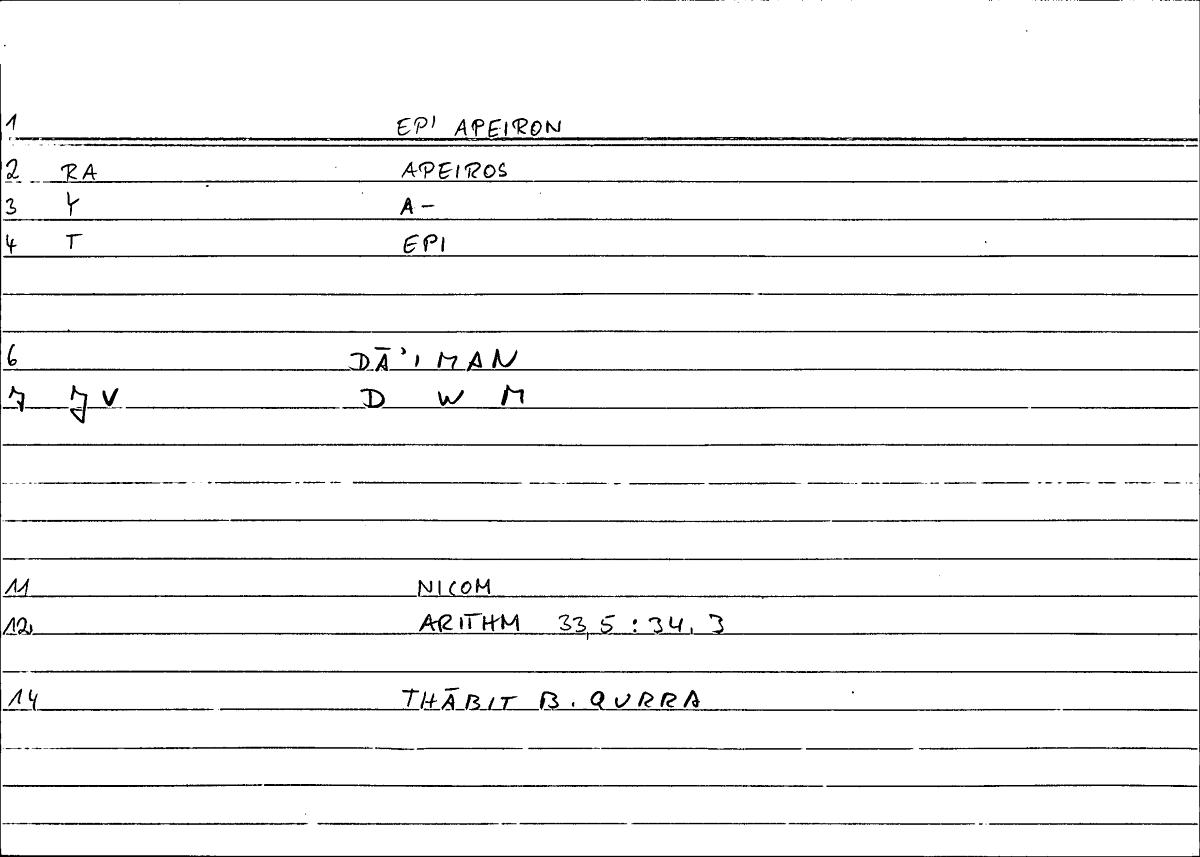 1 EPI APEIRON
2 RA APEIROS
3 Y A-
4 T EPI
6 DĀ'IMAN
7 JV D W M
11 NICOM
12 ARITHM 33,5 : 34,3
14 THĀBIT B. QURRA